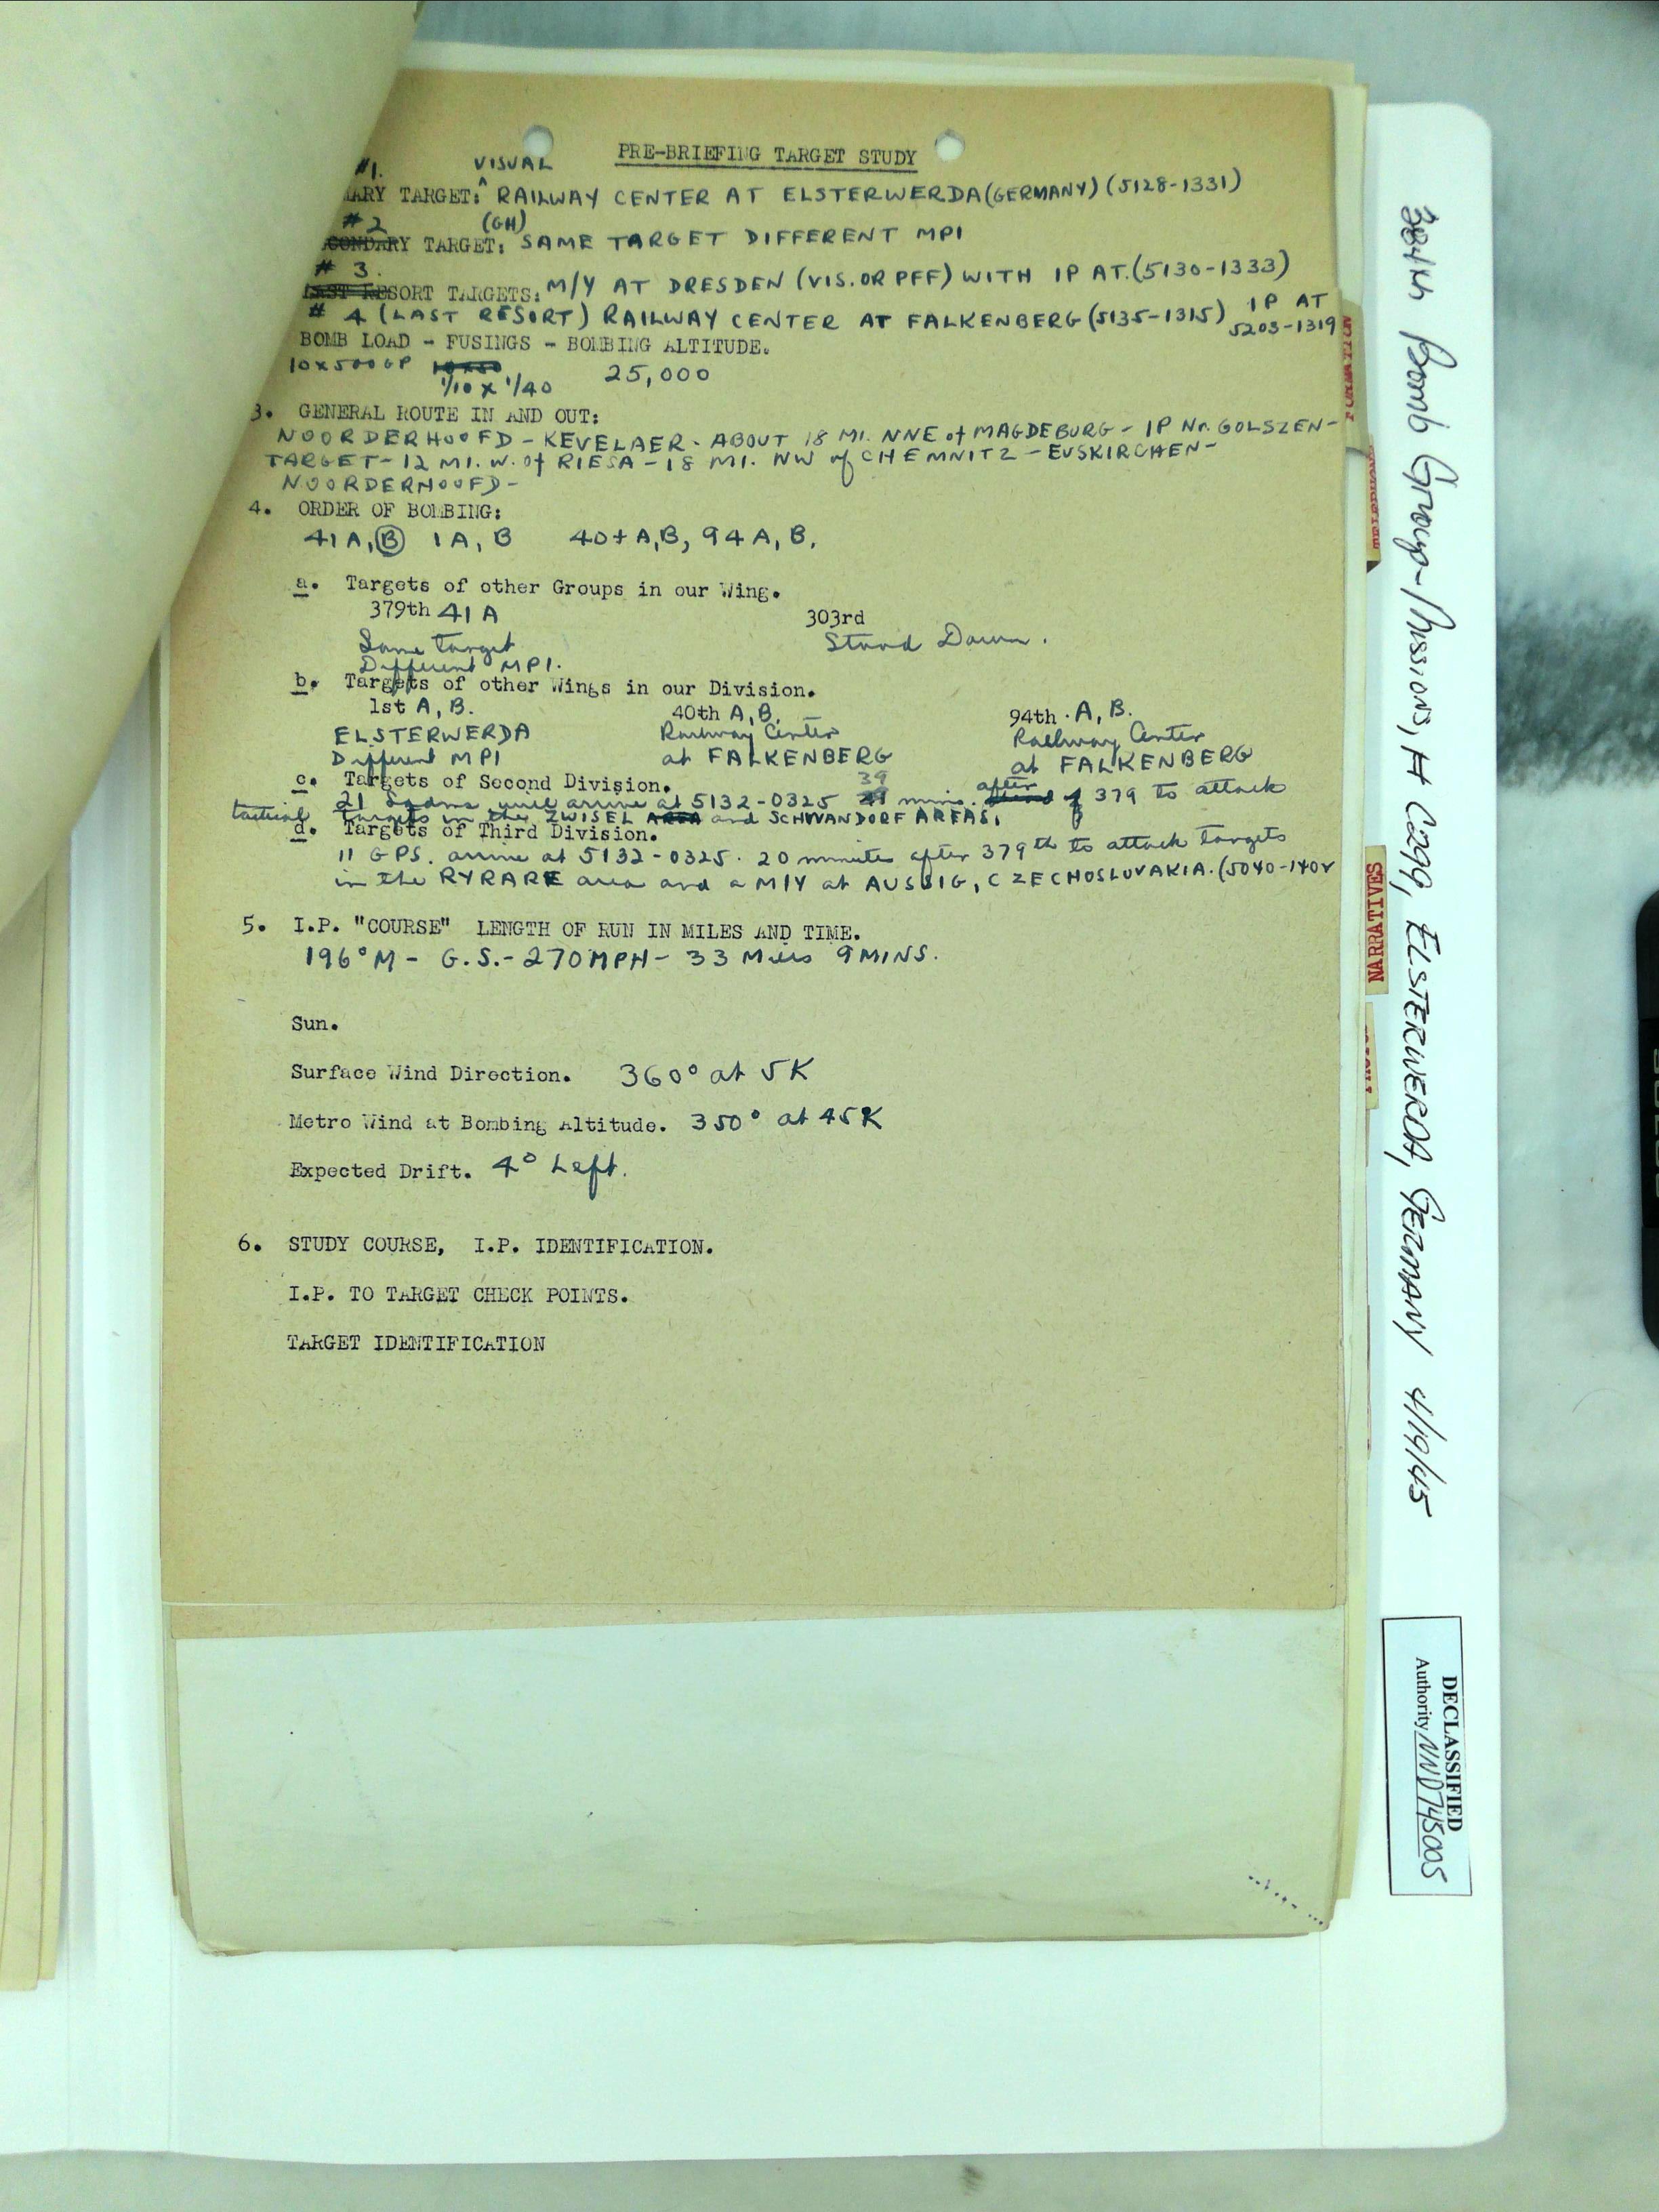 PRE-BRIEFING TARGET STUDY
#1. VISUAL
ARY TARGET: RAILWAY CENTER AT ELSTERWERDA (GERMANY) (5128-1331)
#2 (GH)
TARGET: SAME TARGET DIFFERENT MPI
# 3.
RESORT TARGETS: M/Y AT DRESDEN (VIS. OR PFF) WITH IP AT. (5130-1333)
# 4 (LAST RESORT) RAILWAY CENTER AT FALKENBERG (5135-1315) IP AT 5203-1319
BOMB LOAD - FUSINGS - BOMBING ALTITUDE.
10x500GP 1/10 x 1/40 25,000
3. GENERAL ROUTE IN AND OUT:
NOORDERHOOFD - KEVELAER - ABOUT 18 MI. NNE of MAGDEBURG - IP Nr. GOLSZEN -
TARGET - 12 MI. W. of RIESA - 18 MI. NW of CHEMNITZ - EUSKIRCHEN -
NOORDERHOOFD -
4. ORDER OF BOMBING:
41 A, B 1 A, B 40t A, B, 94 A, B.
a. Targets of other Groups in our Wing.
379th 41 A 303rd
Same Target Stood Down.
Different MPI.
b. Targets of other Wings in our Division.
1st A, B. 40th A, B. 94th A, B.
ELSTERWERDA Railway Center Railway Center
Different MPI at FALKENBERG at FALKENBERG
c. Targets of Second Division.
21 Sqdns will arrive at 5132-0325 39 mins. after 379 to attack
tactical targets in the ZWISEL and SCHWANDORF AREAS.
d. Targets of Third Division.
11 GPS. arrive at 5132-0325. 20 minutes after 379th to attack targets
in the RYRARE area and a M/Y at AUSSIG, CZECHOSLOVAKIA. (5040-140
5. I.P. "COURSE" LENGTH OF RUN IN MILES AND TIME.
196°M - G.S. - 270 MPH - 33 Miles 9 MINS.
Sun.
Surface Wind Direction. 360° at 5K
Metro Wind at Bombing Altitude. 350° at 45K
Expected Drift. 4° Left.
6. STUDY COURSE, I.P. IDENTIFICATION.
I.P. TO TARGET CHECK POINTS.
TARGET IDENTIFICATION
NARRATIVES
384th Bomb Group - Missions, # C299, ELSTERWERDA, GERMANY 4/19/45
DECLASSIFIED
Authority NND745005